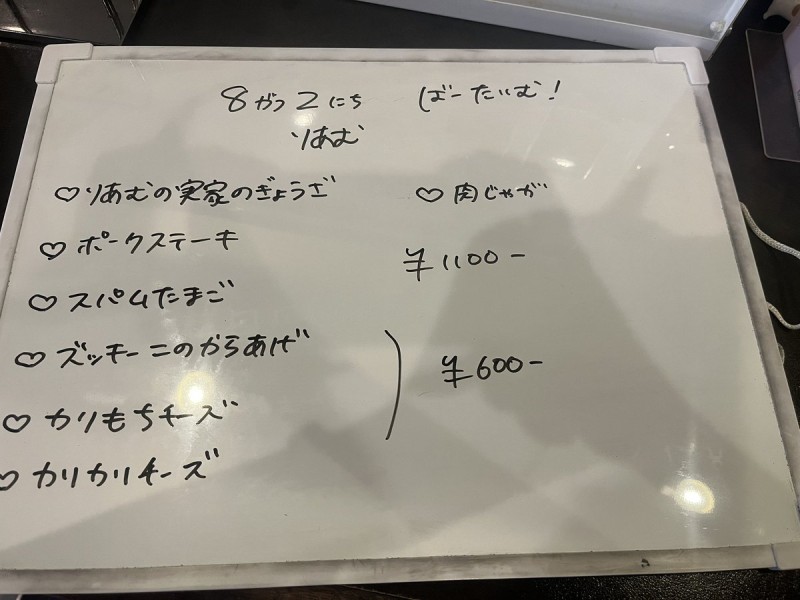 8がつ2にち ばーたいむ!
りあむ
♡りあむの実家のぎょうざ
♡ポークステーキ
♡スパムたまご
♡ズッキーニのからあげ
♡カリもちチーズ
♡カリカリチーズ
♡肉じゃが
¥1100-
¥600-